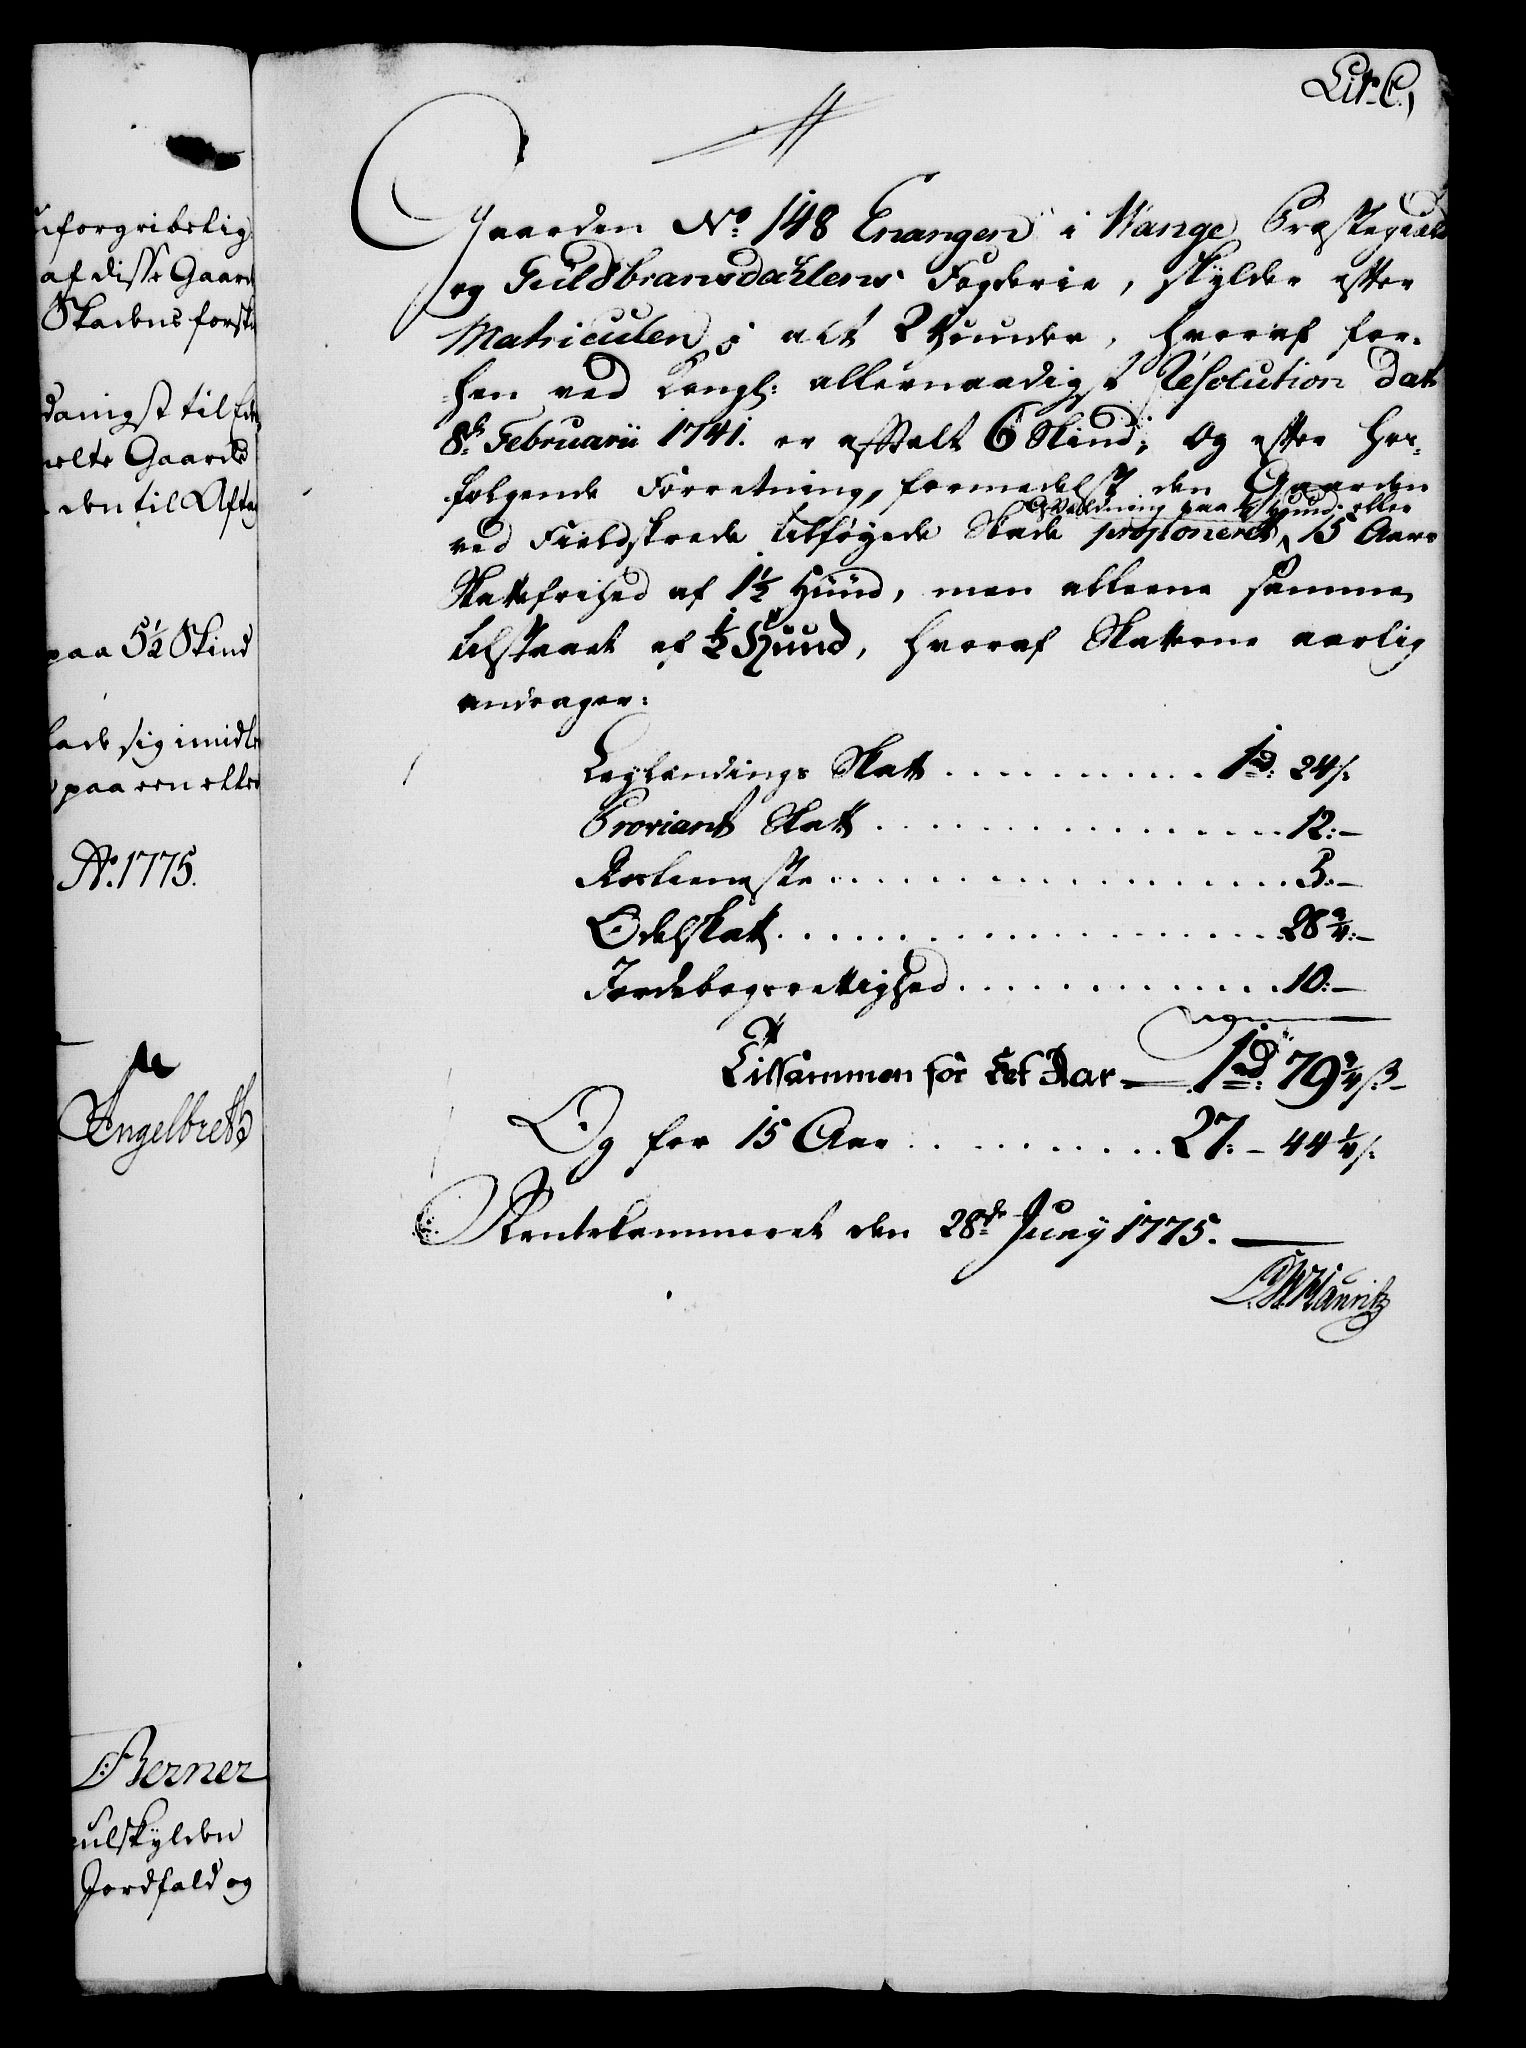 uforgribelig
af disse Gaard
Skadens forsk
danigst til
melte Gaarde
den til Aftag
paa 5½ Skind
lade sig imidle
paa een eller
Ao. 1775.
Engelbreth
Berner
kulskylden
Jordfald og
Lit. C,
Gaarden No. 148 Enangen i Wange Præstegield
og Guldbransdahlens Fogderie, skylder efter
Matriculen i alt 2 Hunder, hvoraf for-
hen ved Kongl: allernaadigst Resolution dat
8de Februarii 1741. er aftalt 6 Skind; og efter her-
følgende Forretning, formedelst den Gaarden
Afældning paa ½ Hund: eller
ved Fieldskrede tilføyede Skade proponeret, 15 Aars
Skattefrihed af 1½ Hünd, men alleene samme
tilstaaet af ½ Hund, hvoraf Skatterne aarlig
andrager:
Leylændings Skatt . . . . . . . . . . 1 rd: 24 s:
Proviant Skatt . . . . . . . . . . . . . . . 12: —
Rostieneste . . . . . . . . . . . . . . . . 5: —
Odelskatt . . . . . . . . . . . . . . . . . 28¾: —
Jordebogsrettighed . . . . . . . . . . . . 10: —
Tilsammen for Eet Aar — 1 rd: 79¾ ß —
Og for 15 Aar . . . . . . . . . . 27: — 44¼ s:
Rentekammeret den 28de Juny 1775. —
Mauritz